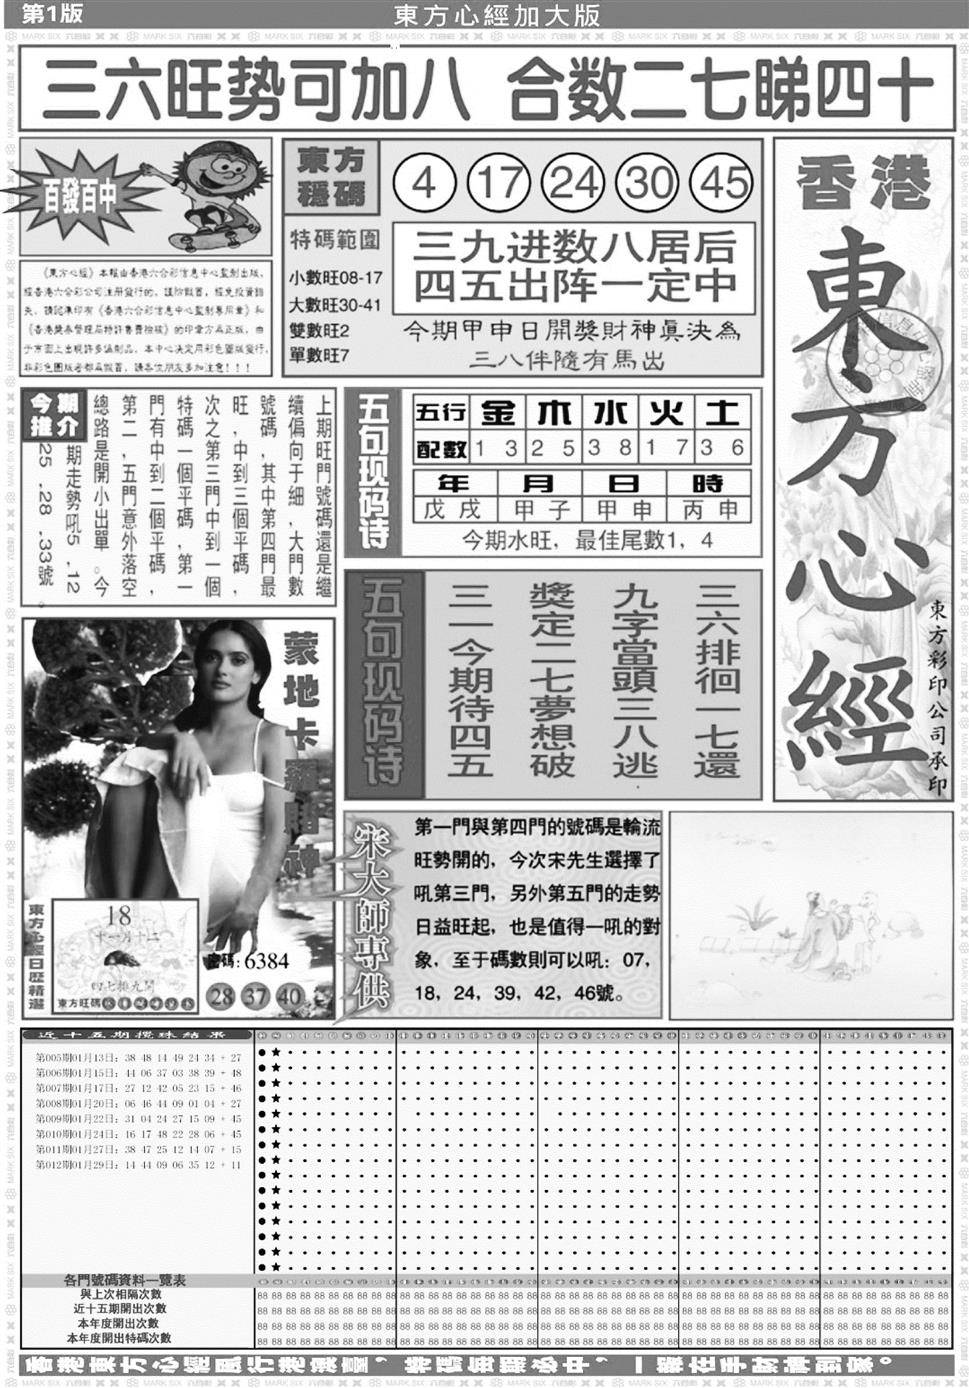 第1版
東方心經加大版
三六旺势可加八 合数二七睇四十
百發百中
《東方心經》本報由香港六合彩信息中心監制出版，
經香港六合彩公司注册發行的，
《香港獎券管理局特許售賣檢核》的印章方爲正版，由
于市面上出現許多僞制品，本中心決定用彩色圖版發行，
非彩色圖版者都爲假冒，請各位朋友多加注意！！！
東方
穩碼
4 17 24 30 45
特碼範圍
小數旺08-17
大數旺30-41
雙數旺2
單數旺7
三九进数八居后
四五出阵一定中
今期甲申日開獎財神眞決為
三八伴隨有馬出
香港
東方心經
東方彩印公司承印
今期
推介
上期旺門號碼還是繼
續偏向于細，大門數
號碼，其中第四門最
旺，中到三個平碼，
次之第三門中到一個
特碼一個平碼，第一
門有中到二個平碼，
第二，五門意外落空，
總路是開小出單。今
期走勢吼5，12
25，28，33號。
五句现码诗
五行 金 木 水 火 土
配數 1 3 2 5 3 8 1 7 3 6
年 月 日 時
戊戌 甲子 甲申 丙申
今期水旺，最佳尾數1，4
五句现码诗
三六排徊一七還
九字當頭三八逃
獎定二七夢想破
三一今期待四五
蒙地卡羅賭神
東方心經日歷精選
18
十一月十二
東方旺碼
密碼:6384
28 37 40
宋大師專供
第一門與第四門的號碼是輪流
旺勢開的，今次宋先生選擇了
吼第三門，另外第五門的走勢
日益旺起，也是值得一吼的對
象，至于碼數則可以吼：07，
18，24，39，42，46號。
近十五期攪珠結果
第005期01月13日：38 48 14 49 24 34 + 27
第006期01月15日：44 06 37 03 38 39 + 48
第007期01月17日：27 12 42 05 23 15 + 46
第008期01月20日：06 46 44 09 01 04 + 27
第009期01月22日：31 04 24 27 15 09 + 45
第010期01月24日：16 17 48 22 28 06 + 45
第011期01月27日：38 47 25 12 14 07 + 15
第012期01月29日：14 44 09 06 35 12 + 11
各門號碼資料一覽表
與上次相隔次數
近十五期開出次數
本年度開出次數
本年度開出特碼次數
香港東方心經風行港澳臺，特碼每期必中，一版在手財神到家。